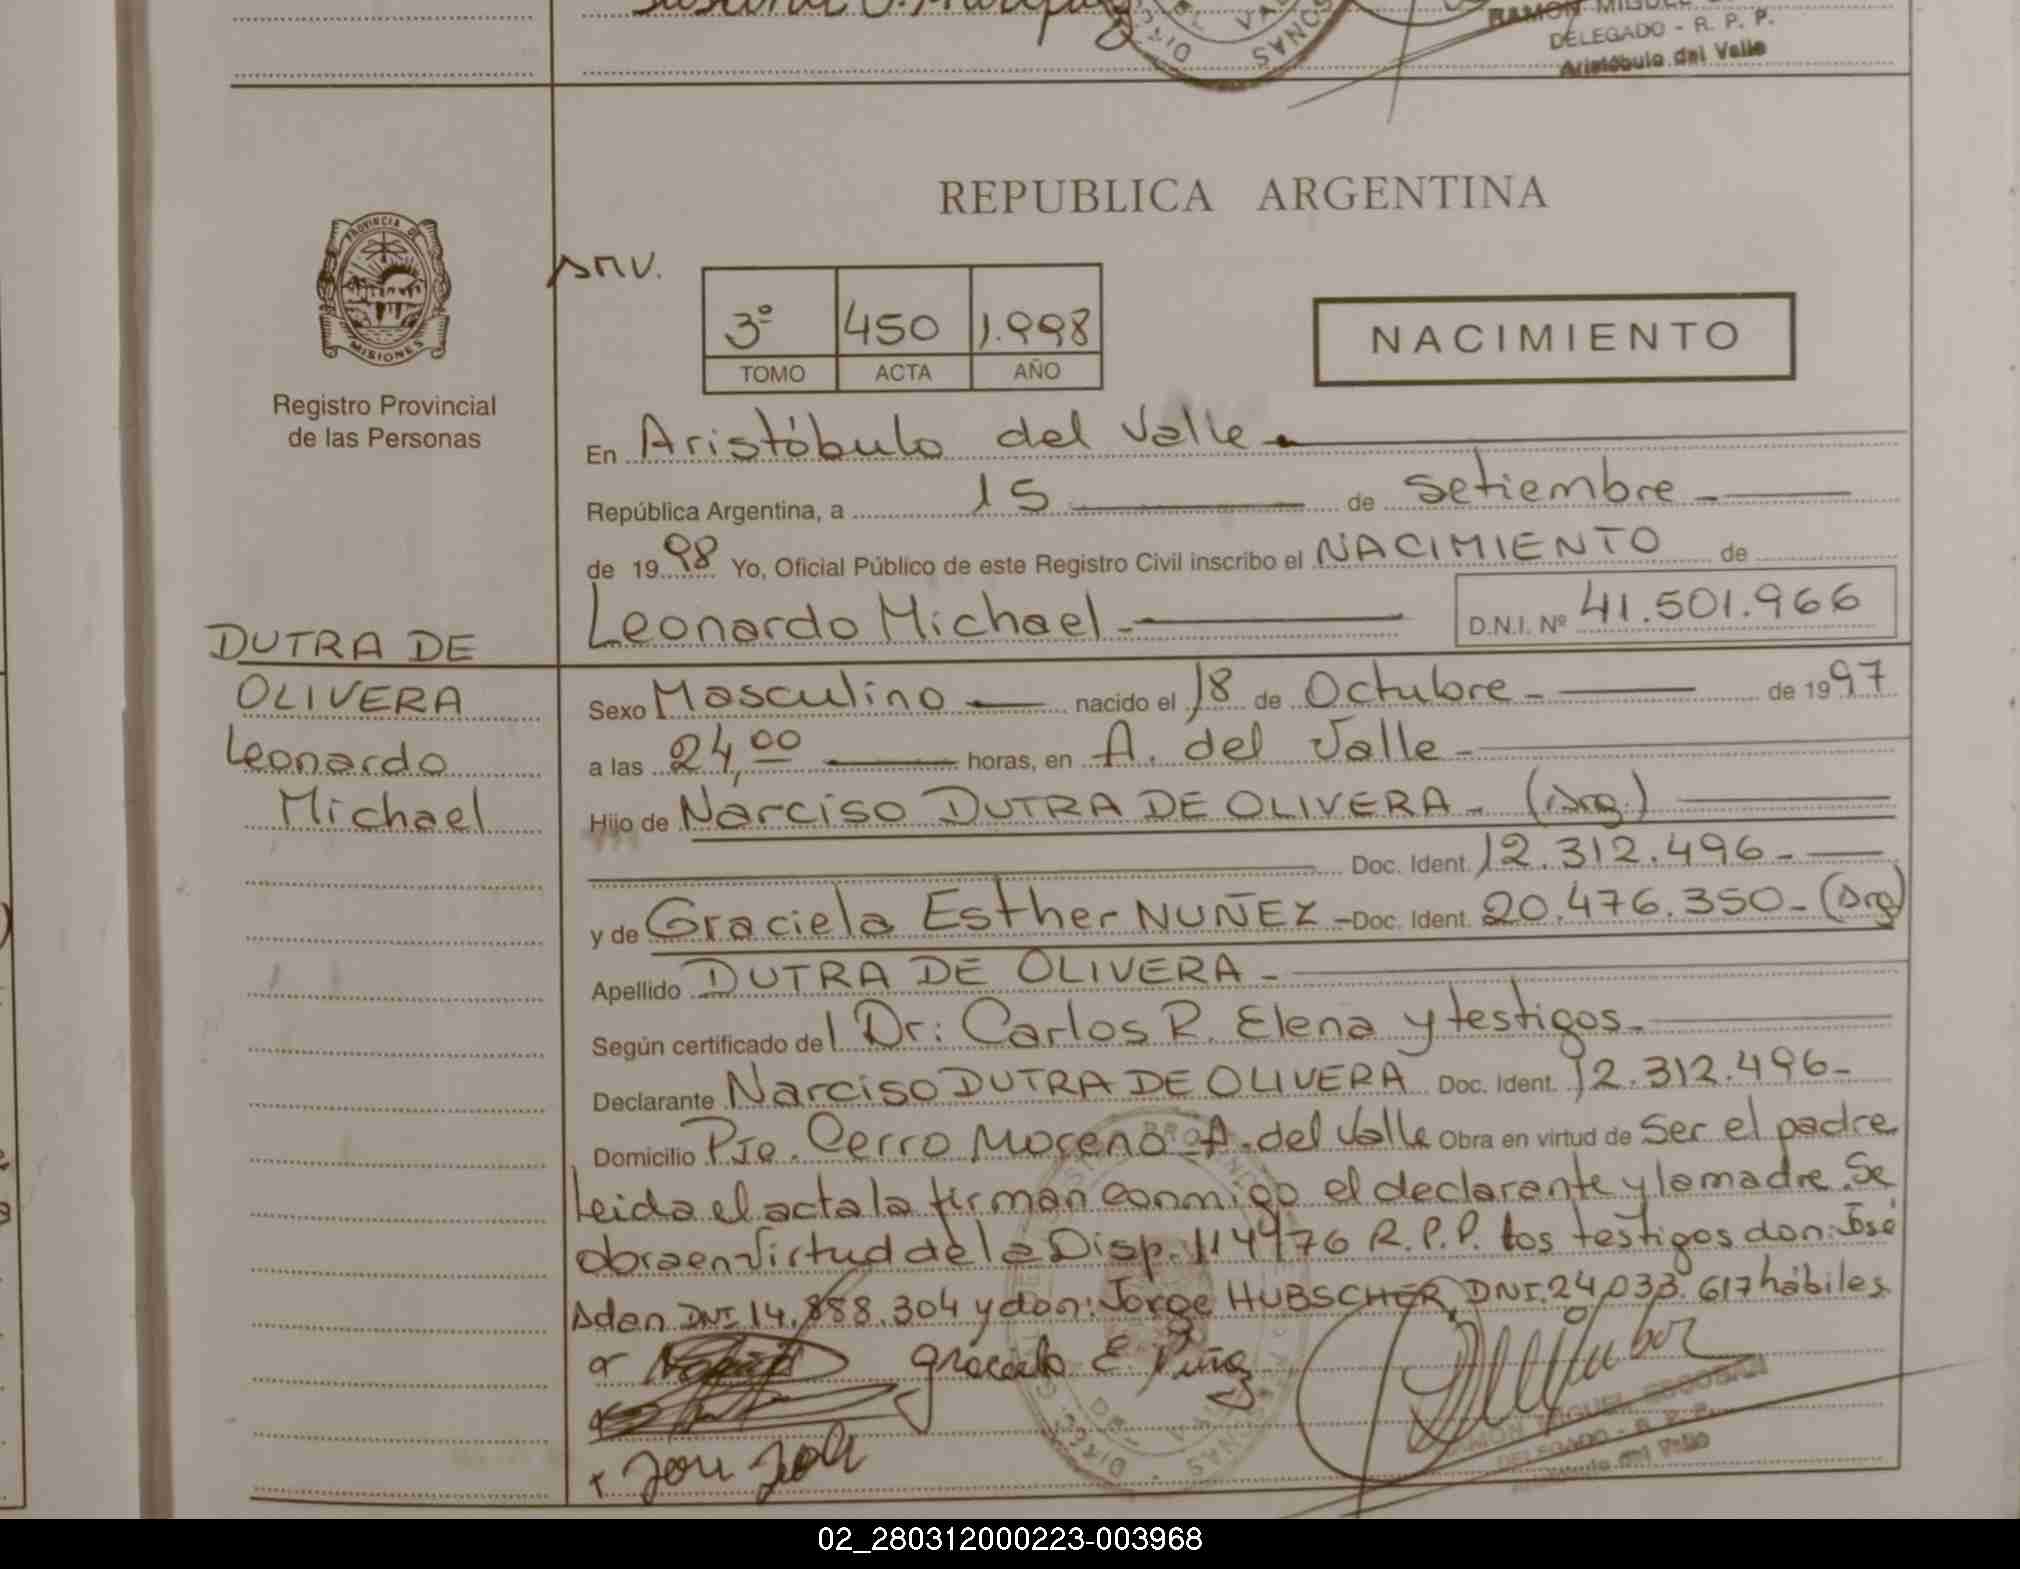 DELEGADO - R. P. P.
Aristóbulo del Valle
REPUBLICA ARGENTINA
PROVINCIA DE
MISIONES
Registro Provincial
de las Personas
3º 450 1.998
TOMO ACTA AÑO
NACIMIENTO
En Aristóbulo del Valle
República Argentina, a 15 de setiembre
de 1998 Yo, Oficial Público de este Registro Civil inscribo el NACIMIENTO de
Leonardo Michael D.N.I. Nº 41.501.966
DUTRA DE
OLIVERA
Leonardo
Michael
Sexo Masculino nacido el 18 de Octubre de 1997
a las 24,00 horas, en A. del Valle
Hijo de Narciso DUTRA DE OLIVERA (Arg.)
Doc. Ident. 12.312.496
y de Graciela Esther NUÑEZ Doc. Ident. 20.476.350 (Arg)
Apellido DUTRA DE OLIVERA
Según certificado del Dr: Carlos R. Elena y testigos
Declarante Narciso DUTRA DE OLIVERA Doc. Ident. 12.312.496
Domicilio Pje. Cerro Moreno A. del Valle Obra en virtud de Ser el padre
Leida el acta la firman conmigo el declarante y la madre. Se
obra en virtud de la Disp. R.P.P. los testigos don: José
Aden DNI 14.888.304 y don: Jorge HUBSCHER, DNI. 24.033.617 hábiles
02_280312000223-003968